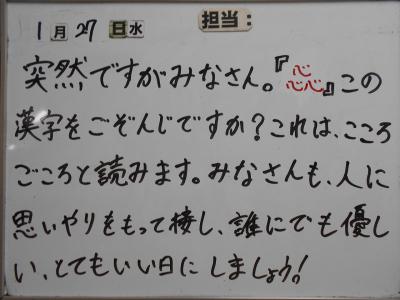 担当:
1月27日水
突然ですがみなさん。『惢』この
漢字をごぞんじですか?これは、こころ
ごころと読みます。みなさんも、人に
思いやりをもって接し、誰にでも優し
い、とてもいい日にしましょう!